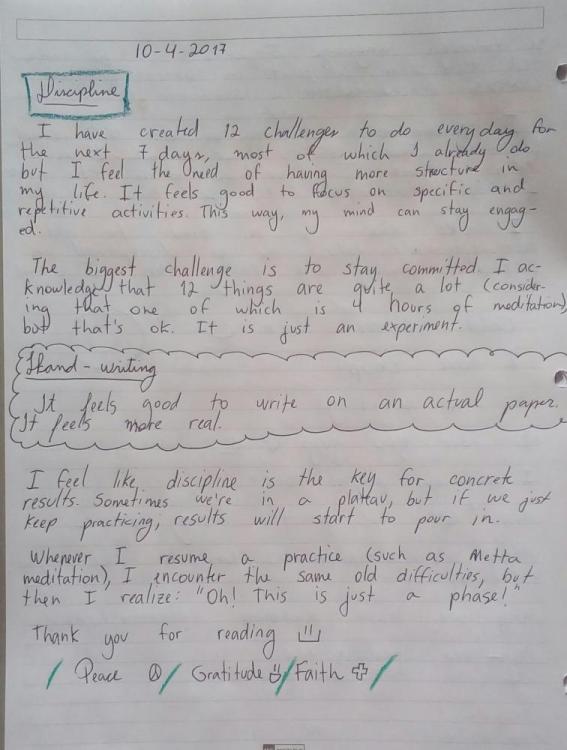 10-4-2017
Discipline
I have created 12 challenges to do everyday for
the next 7 days, most of which I already do
but I feel the need of having more structure in
my life. It feels good to focus on specific and
repetitive activities. This way, my mind can stay engag-
ed.
The biggest challenge is to stay committed. I ac-
knowledge that 12 things are quite a lot (consider-
ing that one of which is 4 hours of meditation),
but that's ok. It is just an experiment.
Hand-writing
It feels good to write on an actual paper.
It feels more real.
I feel like discipline is the key for concrete
results. Sometimes we're in a plattau, but if we just
keep practicing, results will start to pour in.
Whenever I resume a practice (such as Metta
meditation), I encounter the same old difficulties, but
then I realize: "Oh! This is just a phase!"
Thank you for reading
/ Peace ☮ / Gratitude / Faith /